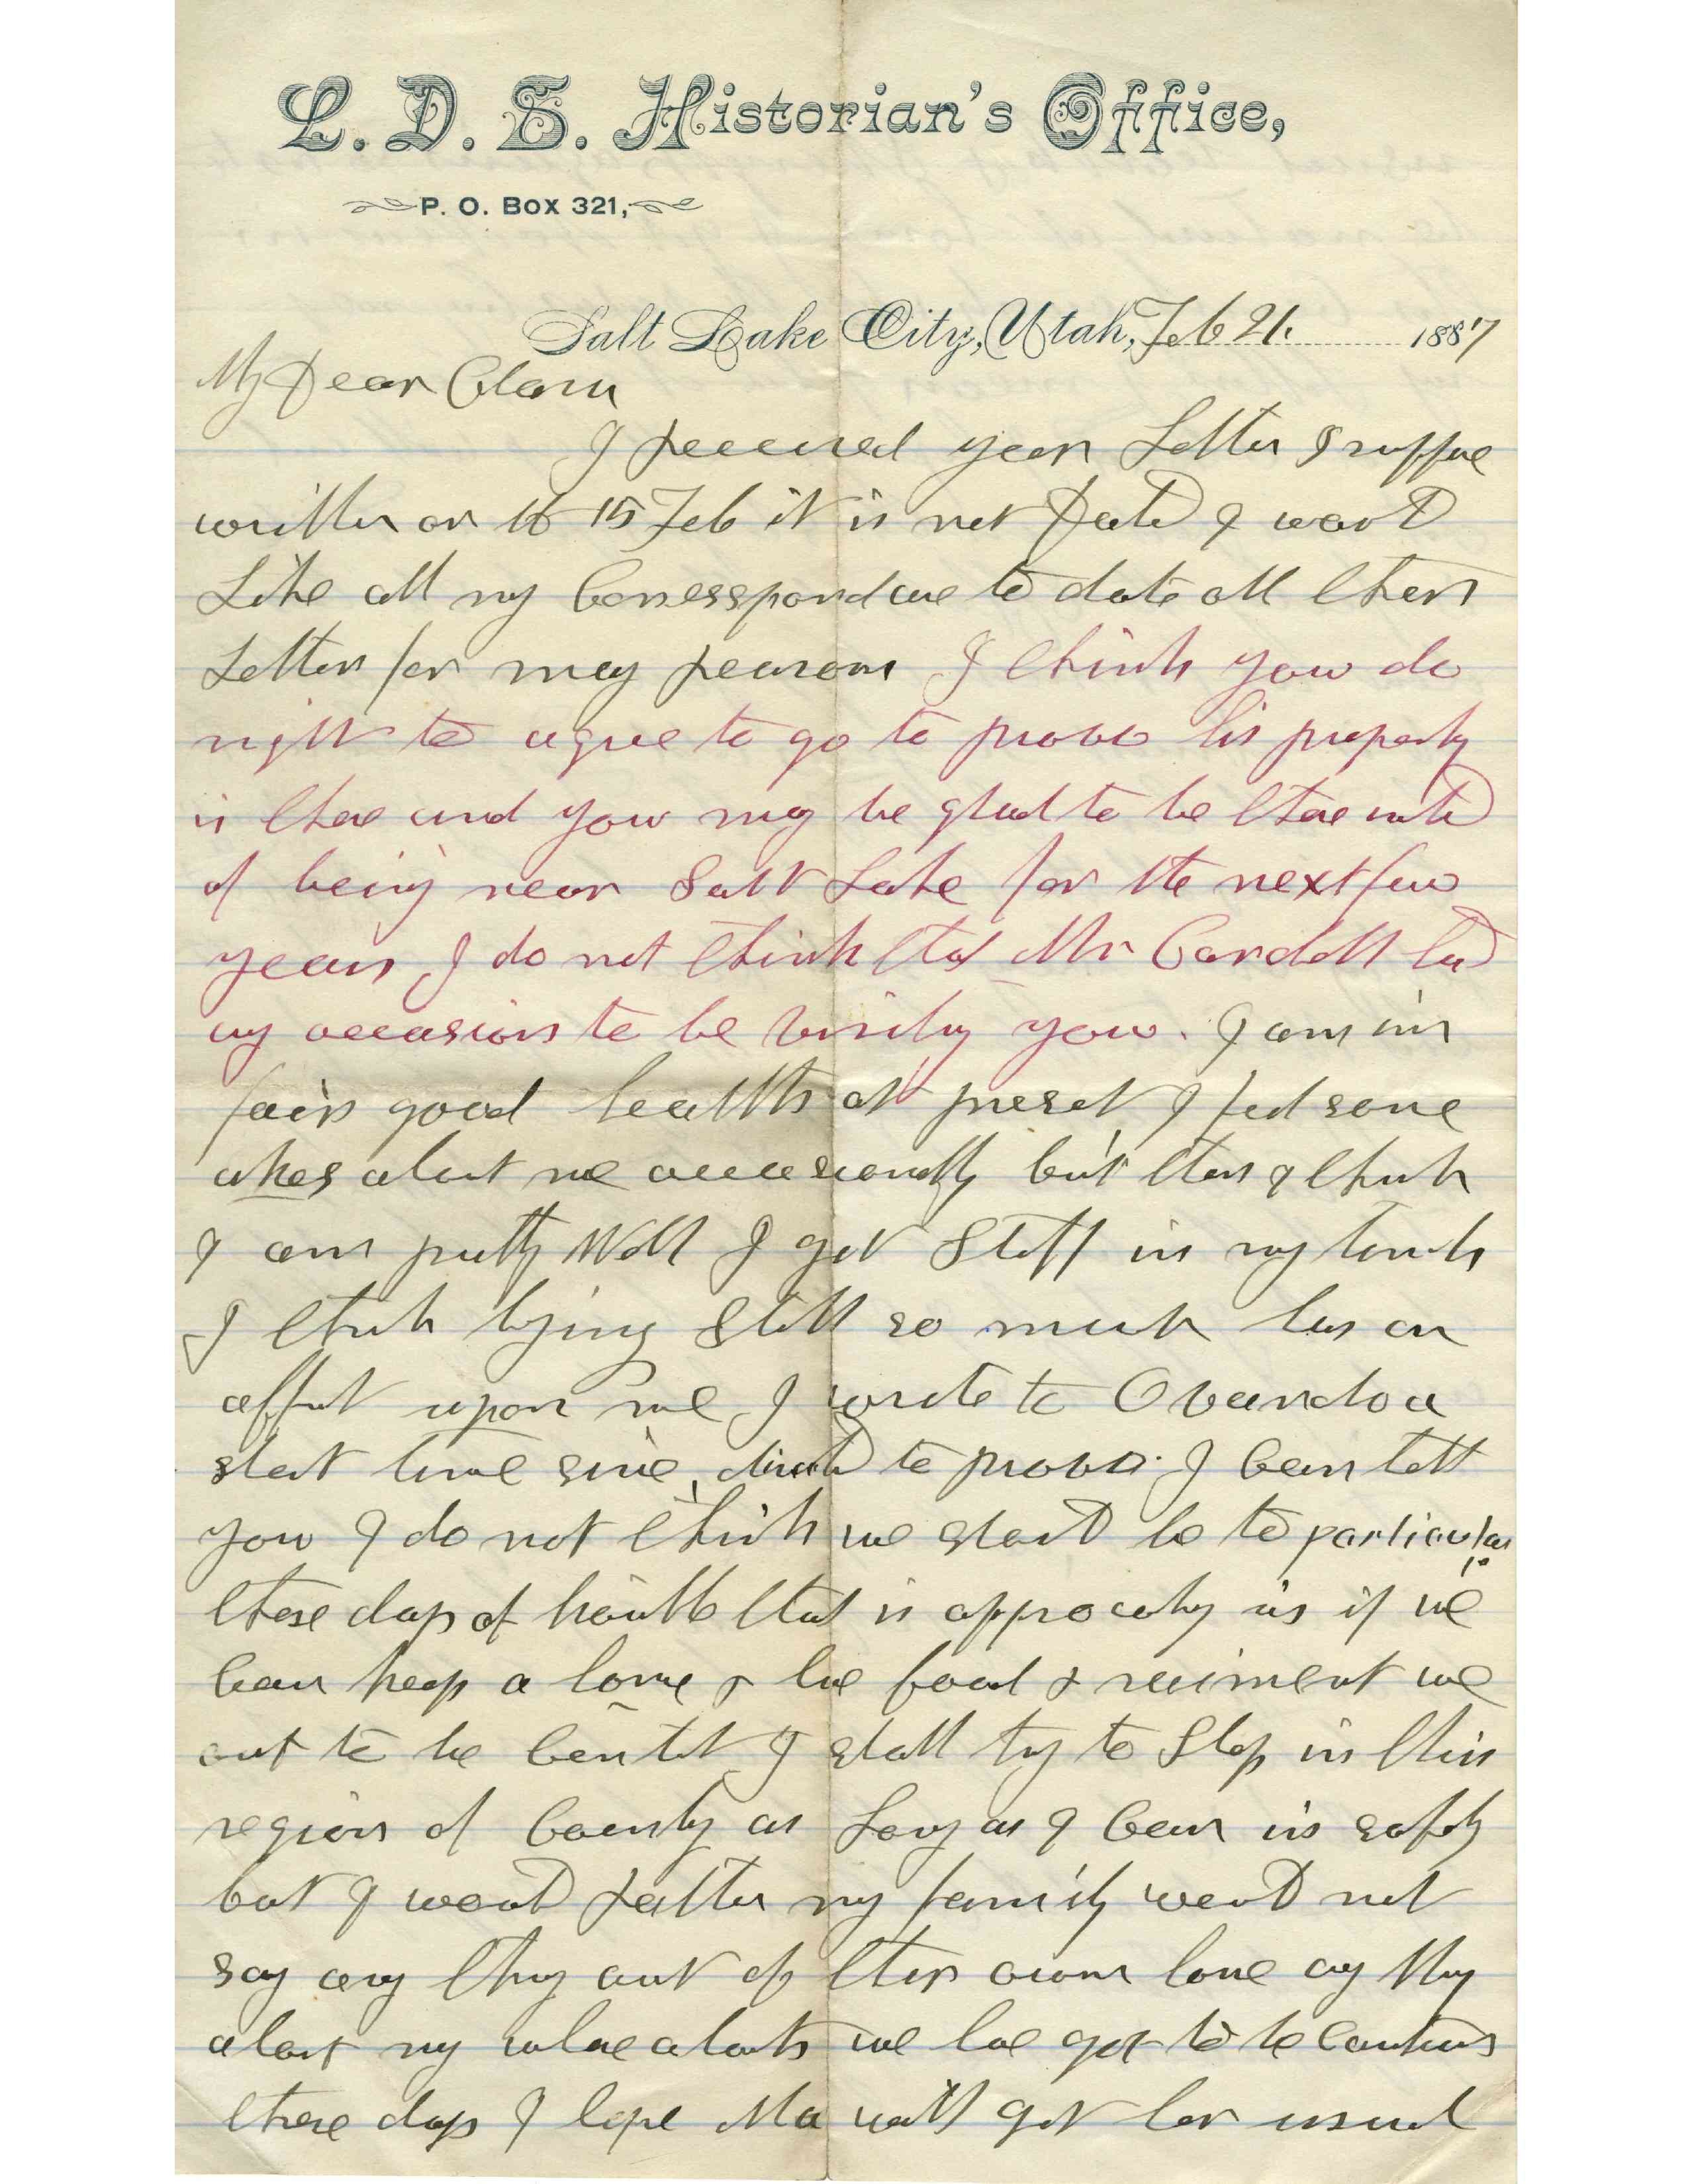 L. D. S. Historian's Office,
P. O. Box 321,
Salt Lake City, Utah, Feb 21. 1887
My Dear Clara
I Received your Letter I suppose
written on the 15 Feb it is not Dated I would
Like all my Corresspondance to date all their
Letters for many Reasons I think you do
right to agree to go to Provo his property
is there and you may be glad to be there insted
of being near Salt Lake for the next few
years I do not think that Mr Cardell had
any occasion to be visiting you. I am in
fair good health at present I feel some
akes about me occasionally but then I think
I am pretty Well I get Stiff in my limbs
I think lying Still so much has an
affect upon me I wrote to Ovando a
short time since, directed to Provo. I can tell
you I do not think we should be to particular
these days of trouble that is approaching us if we
can keep a home & have food & raiment we
out to be content I shall try to Stop in this
region of County as Long as I can in safety
but I would Rather my family would not
say any thing out of their own home any thing
about my whareabouts we have got to be Cautious
these days I hope Ma will get her usual